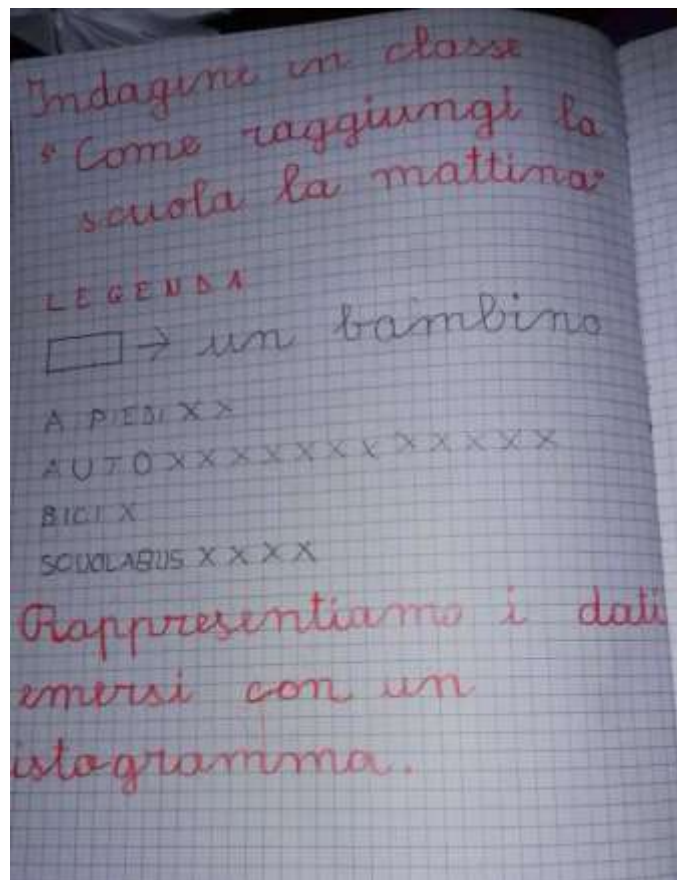 Indagine in classe
• Come raggiungi la
scuola la mattina?
LEGENDA
→ un bambino
A PIEDI X X
AUTO X X X X X X X X X X X X
BICI X
SCUOLABUS X X X X
Rappresentiamo i dati
emersi con un
istogramma.